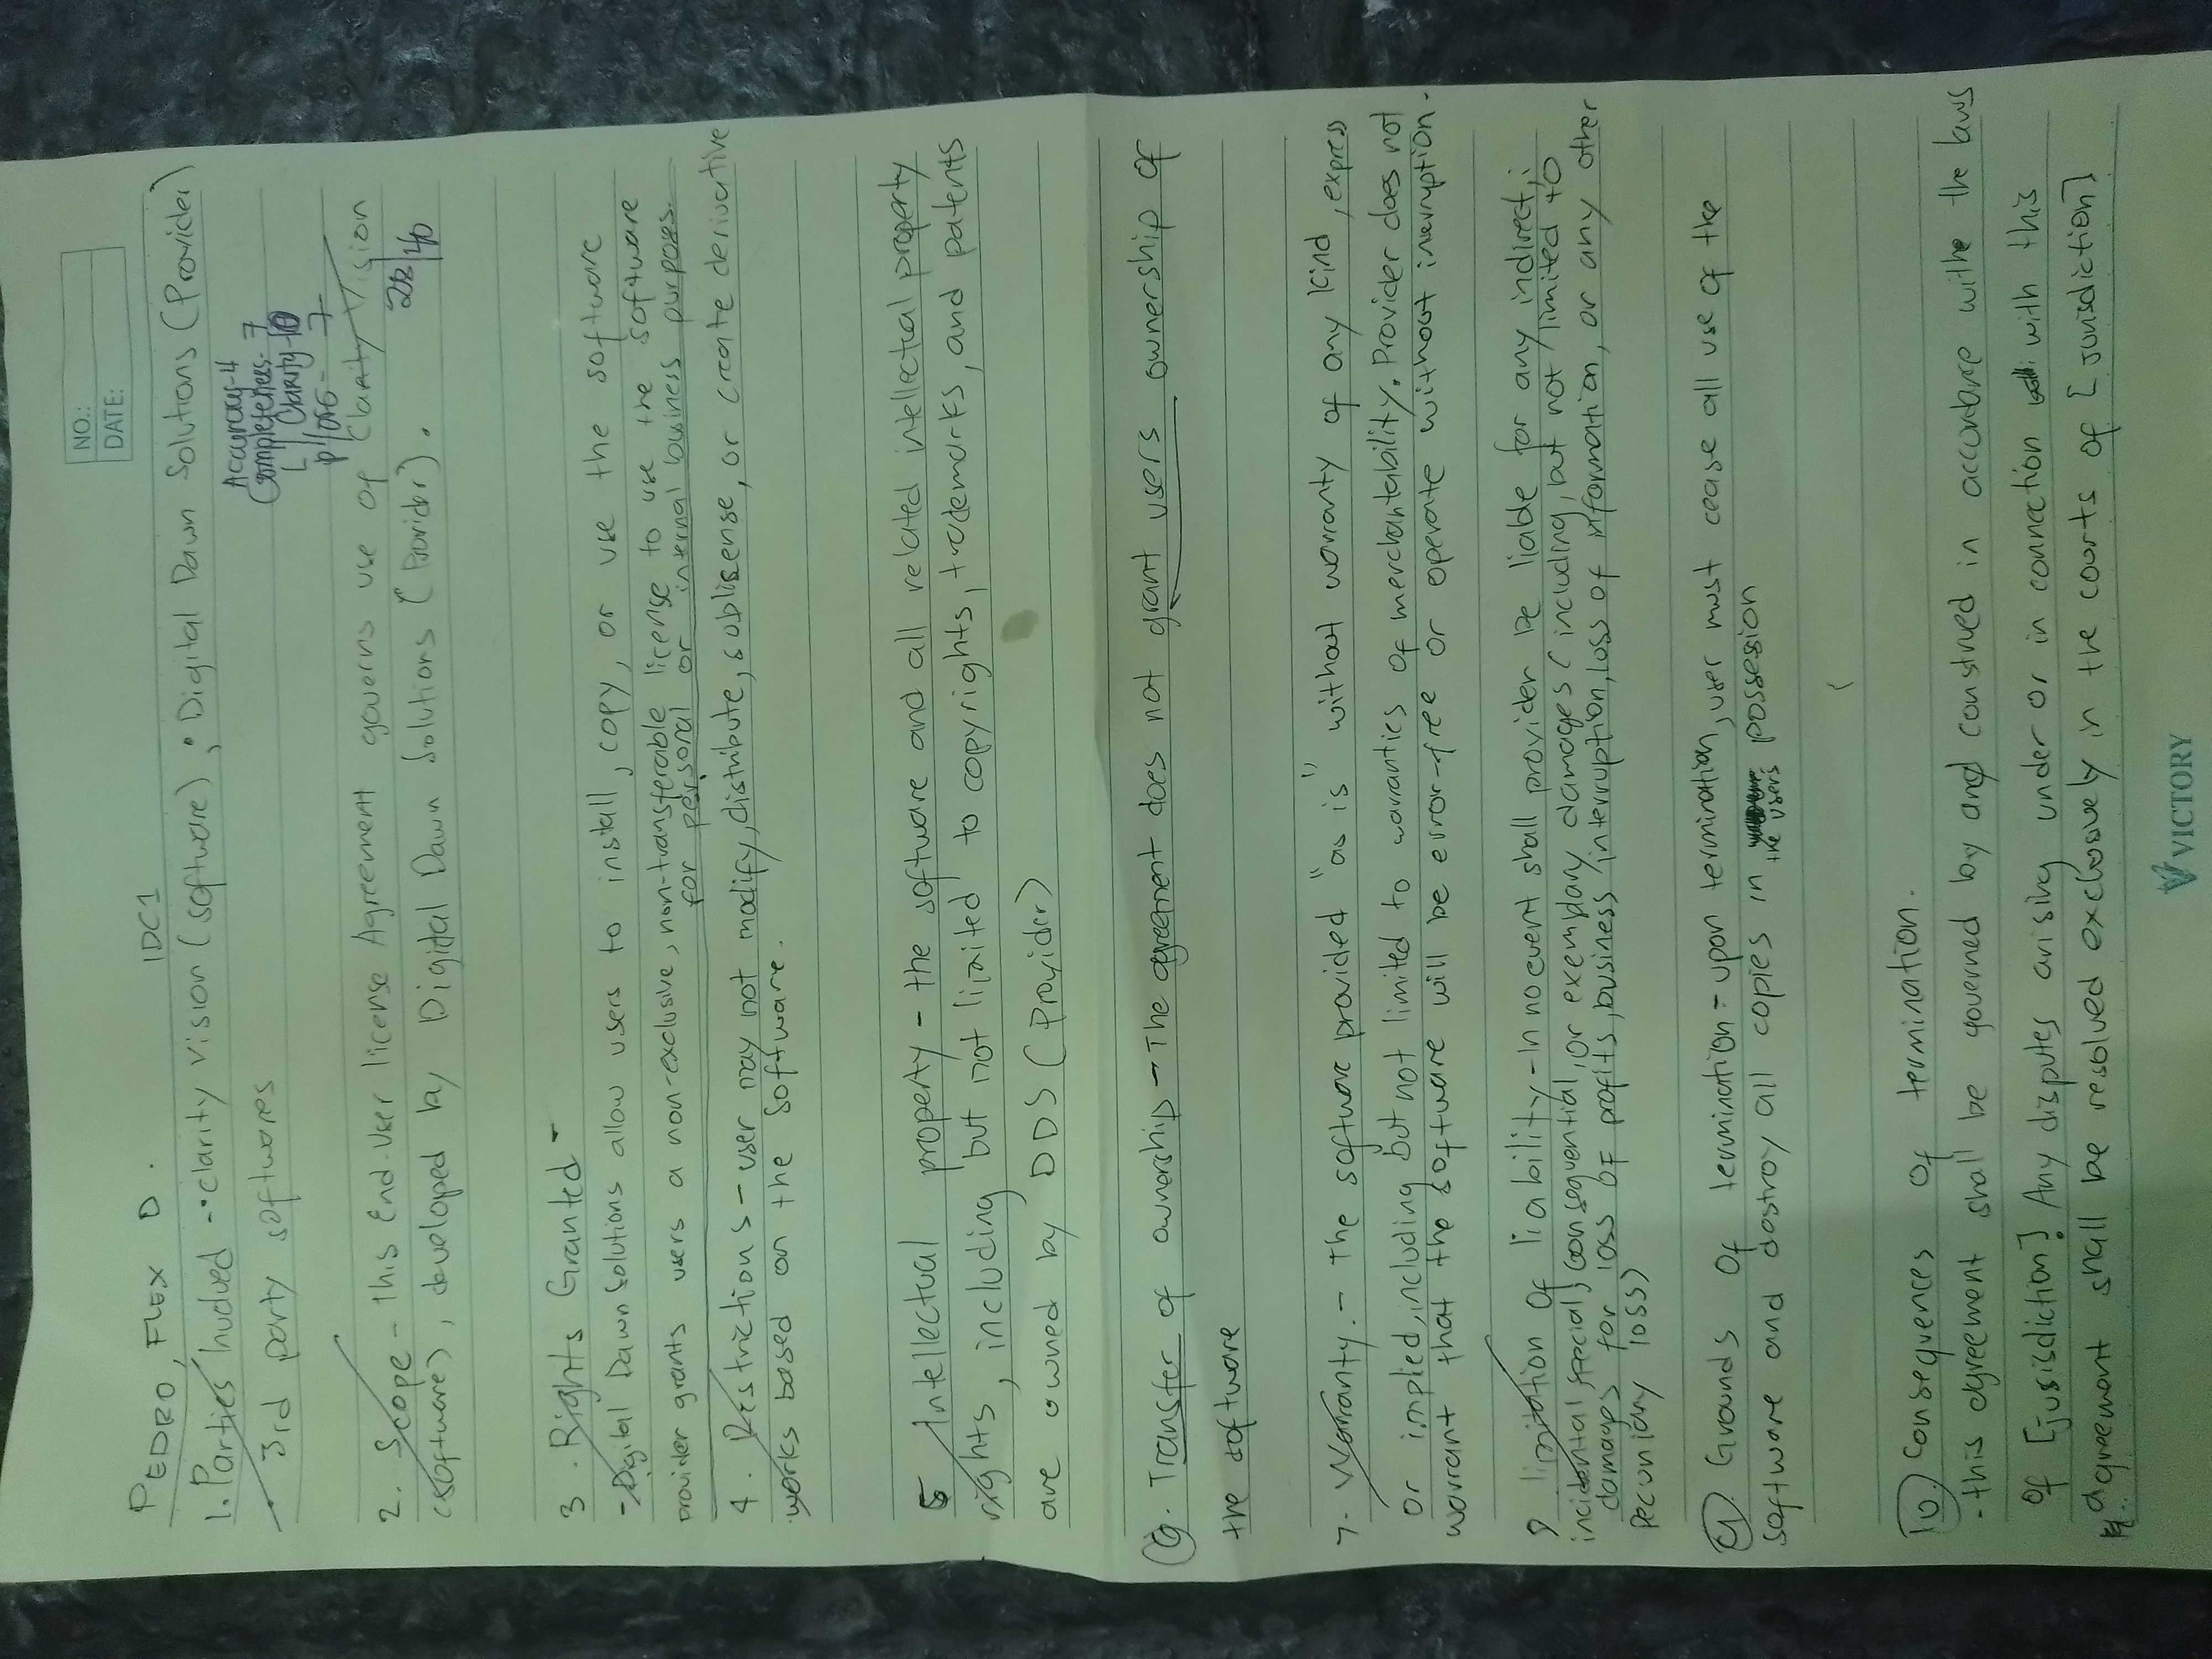 NO.:
DATE:
PEDRO, FLEX D. IDC1
1. Parties Invdved - • clarity vision (software) ; • Digital Dawn Solutions (Provider)
• 3rd party softwares
Accuracy - 4
Completenes - 7
Clarity - 10
7
28/40
2. Scope - this End-User license Agreement governs use of Clarity Vision
(software), developed by Digital Dawn Solutions (Provider).
3. Rights Granted -
- Digital Dawn Solutions allow users to install, copy, or use the software
provider grants users a non-exclusive, non-transferable license to use the software
for personal or internal business purposes.
4. Restrictions - user may not modify, distribute, sublisense, or create derivative
works based on the software.
5 Intellectual property - the software and all related intellectual property
rights, including but not limited to copyrights, trademarks, and patents
are owned by DDS (Provider)
6. Transfer of ownership - The agreement does not grant users ownership of
the software
7. Warranty. - The software provided "as is" without warranty of any kind, express
or implied, including but not limited to warranties of merchantability. Provider does not
warrant that the software will be error-free or operate without inerruption.
8 limitation of liability - In no event shall provider be liable for any indirect,
incidental special, consequential, or exemplary damages (including, but not limited to
damages for loss of profits, business interruption, loss of information, or any other
pecuniary loss)
9. Grounds of termination - upon termination, user must cease all use of the
software and destroy all copies in the users possession
10. Consequences of termination.
- this agreement shall be governed by and construed in accordance withe the laws
of [jurisdiction]. Any disputes arising under or in connection with this
agreement shall be resolved exclusively in the courts of [jurisdiction]
VICTORY